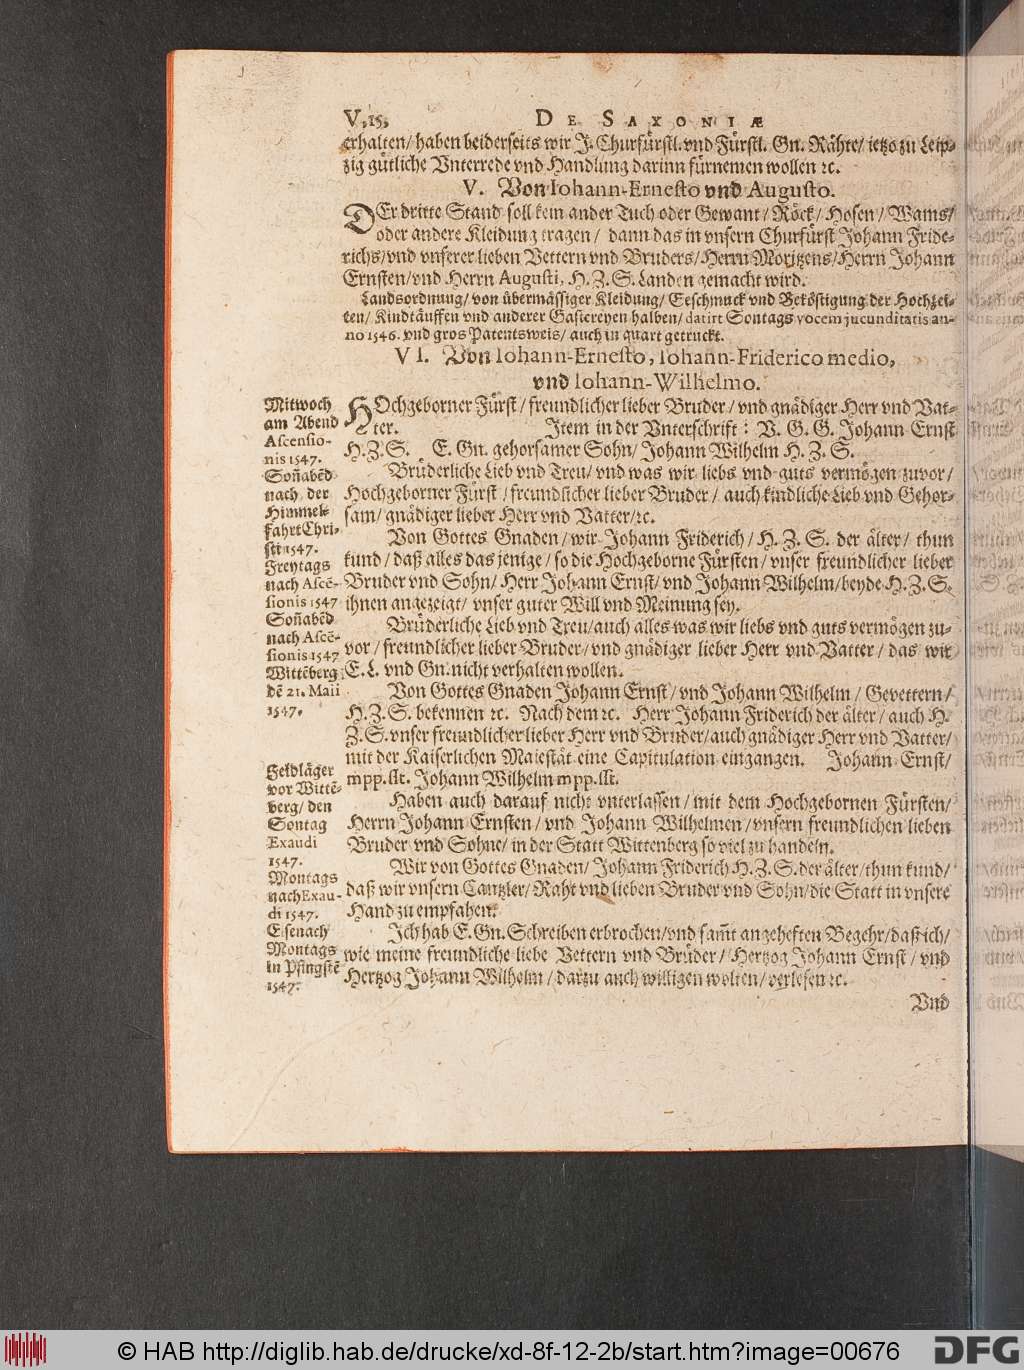 V, 15. DE SAXONIÆ
erhalten/ haben beiderseits wir J. Churfürstl. vnd Fürstl. Gn. Rähte/ ietzo zu Leip-
zig gütliche Vnterrede vnd Handlung darinn fürnemen wollen ꝛc.
V. Von Iohann-Ernesto vnd Augusto.
DEr dritte Stand soll kein ander Tuch oder Gewant/ Röck/ Hosen/ Wams/
oder andere Kleidung tragen/ dann das in vnsern Churfürst Johann Fride-
richs/ vnd vnserer lieben Vettern vnd Bruders/ Herrn Moritzens/ Herrn Johann
Ernsten/ vnd Herrn Augusti, H. Z. S. Landen gemacht wird.
Landsordnung/ von übermässiger Kleidung/ Geschmuck vnd Beköstigung der Hochzei-
ten/ Kindtäuffen vnd anderer Gastereyen halben/ datirt Sontags vocem jucunditatis an-
no 1546. vnd gros Patentsweis/ auch in quart getruckt.
VI. Von Iohann-Ernesto, Iohann-Friderico medio,
vnd Iohann-Wilhelmo.
HOchgeborner Fürst/ freundlicher lieber Bruder/ vnd gnädiger Herr vnd Vat-
ter. Item in der Vnterschrift: V. G. G. Johann Ernst
H. Z. S. E. Gn. gehorsamer Sohn/ Johann Wilhelm H. Z. S.
Brüderliche Lieb vnd Treu/ vnd was wir liebs vnd guts vermögen zuvor/
Hochgeborner Fürst/ freundlicher lieber Bruder/ auch kindliche Lieb vnd Gehor-
sam/ gnädiger lieber Herr vnd Vatter/ ꝛc.
Von Gottes Gnaden/ wir Johann Friderich/ H. Z. S. der älter/ thun
kund/ daß alles das jenige/ so die Hochgeborne Fürsten/ vnser freundlicher lieber
Bruder vnd Sohn/ Herr Johann Ernst/ vnd Johann Wilhelm/ beyde H. Z. S.
ihnen angezeigt/ vnser guter Will vnd Meinung sey.
Brüderliche Lieb vnd Treu/ auch alles was wir liebs vnd guts vermögen zu-
vor/ freundlicher lieber Bruder/ vnd gnädiger lieber Herr vnd Vatter/ das wir
E. L. vnd Gn. nicht verhalten wollen.
Von Gottes Gnaden Johann Ernst/ vnd Johann Wilhelm/ Gevettern/
H. Z. S. bekennen ꝛc. Nach dem ꝛc. Herr Johann Friderich der älter/ auch H.
Z. S. vnser freundlicher lieber Herr vnd Bruder/ auch gnädiger Herr vnd Vatter/
mit der Kaiserlichen Maiestät eine Capitulation eingangen. Johann Ernst/
mpp. sst. Johann Wilhelm mpp. sst.
Haben auch darauf nicht vnterlassen/ mit dem Hochgebornen Fürsten/
Herrn Johann Ernsten/ vnd Johann Wilhelmen/ vnsern freundlichen lieben
Bruder vnd Sohne/ in der Statt Wittenberg so viel zu handeln.
Wir von Gottes Gnaden/ Johann Friderich H. Z. S. der älter/ thun kund/
daß wir vnsern Cantzler/ Raht vnd lieben Bruder vnd Sohn/ die Statt in vnsere
Hand zu empfahen.
Ich hab E. Gn. Schreiben erbrochen/ vnd sam̃t angeheften Begehr/ daß ich/
wie meine freundliche liebe Vettern vnd Brüder/ Hertzog Johann Ernst/ vnd
Hertzog Johann Wilhelm/ darzu auch willigen wolten/ verlesen ꝛc.
Vnd
Mitwoch
am Abend
Ascensio-
nis 1547.
Soñabẽd
nach der
Himmel-
fahrt Chri-
sti 1547.
Freytags
nach Ascẽ-
sionis 1547
Soñabẽd
nach Ascẽ-
sionis 1547
Wittẽberg
dẽ 21. Maii
1547.
Feldläger
vor Wittẽ-
berg/ den
Sontag
Exaudi
1547.
Montags
nach Exau-
di 1547.
Eisenach
Montags
in Pfingstẽ
1547.
© HAB http://diglib.hab.de/drucke/xd-8f-12-2b/start.htm?image=00676
DFG